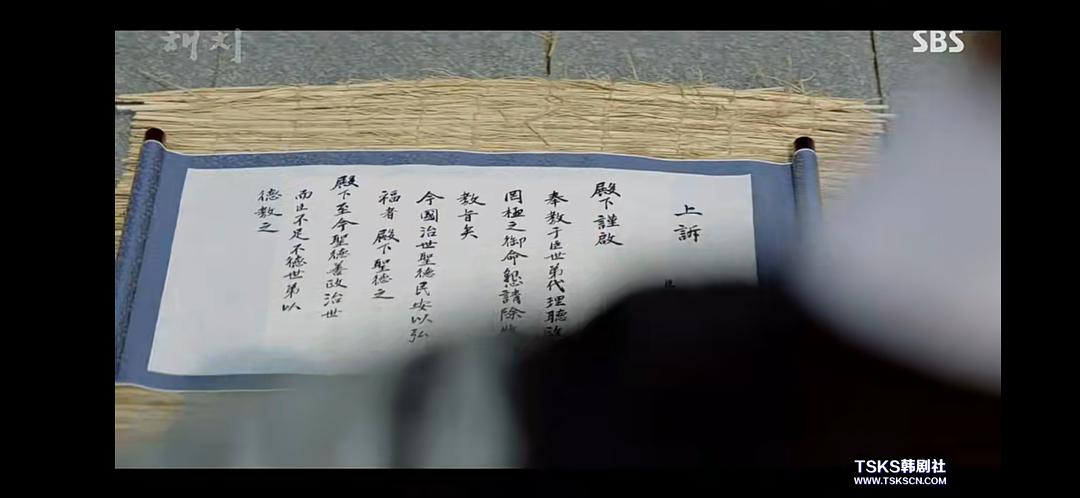 해치
SBS
上訴
殿下謹啟
奉教于臣世弟代理聽
罔極之御命懇請除
教旨矣
今國治世聖德民安以弘
福者 殿下聖德之
殿下至今聖德善政治世
而止不足不德世弟以
德教之
TSKS韩剧社
WWW.TSKSCN.COM